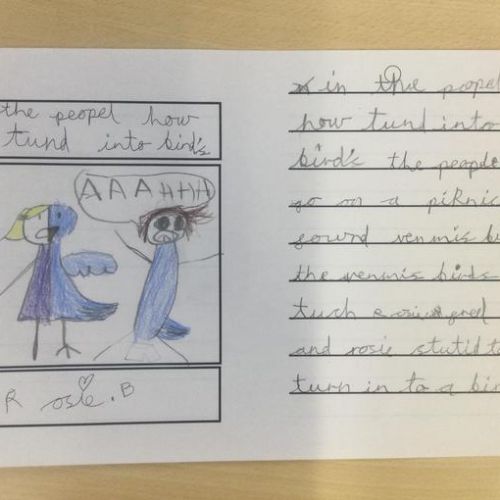 the peopel how
tund into bird's
AAAHHH
Rosie.B
in the peopel
how tund into
bird's the people
go on a pikni
sound venmis bi
the venmis birds
tuch rosie
and rosie stutid t
turn in to a bir